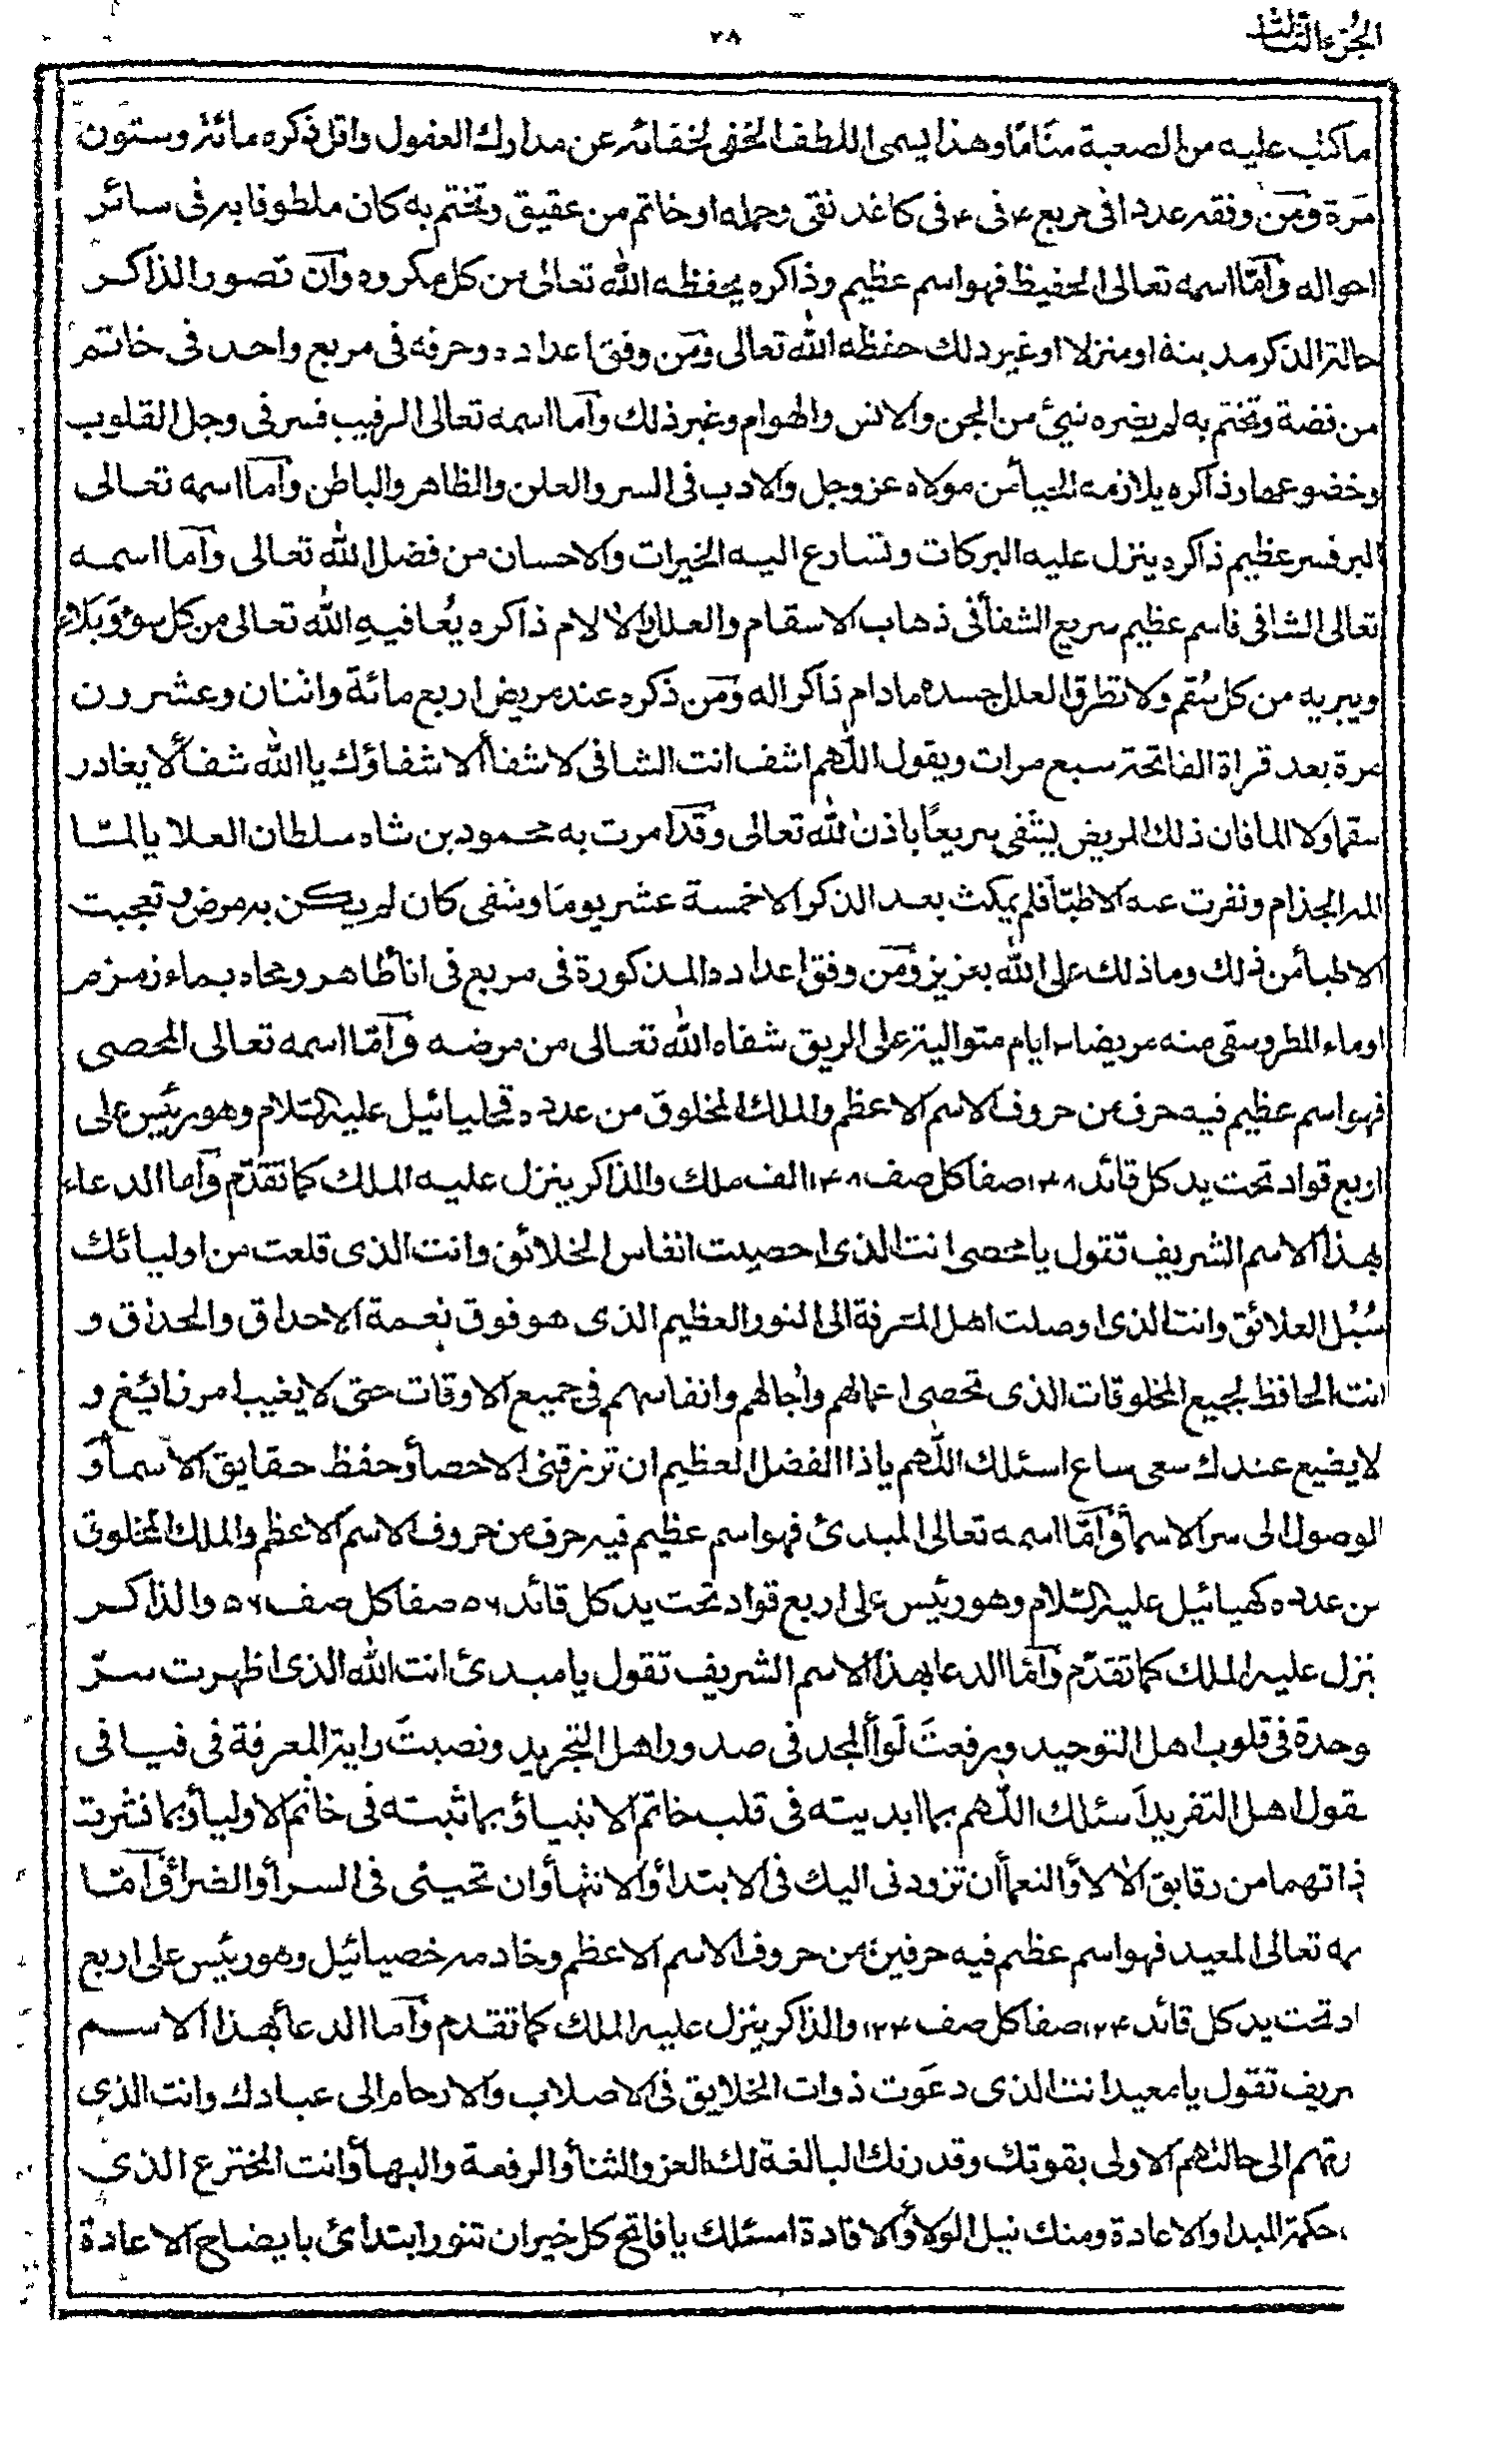 الجزء الثالث
٣٨
ما كتب عليه من الصعبة مناما وهذا يسمى اللطف الخفى لخفائه عن مدارك العقول واقل ذكره مائة وستون
مرة ومن وفقه عددا فى مربع ٤ فى ٤ فى كاغد نقى وحمله او خاتم من عقيق وتختم به كان ملطوفا به فى سائر
احواله وآمّا اسمه تعالى الحفيظ فهو اسم عظيم وذاكره يحفظه الله تعالى من كل مكروه وآن تصور الذاكر
حالة الذكر مدينة او منزلا او غير ذلك حفظه الله تعالى ومن وفق اعداده وحرفه فى مربع واحد فى خاتم
من فضة وتختم به لم يضره شىء من الجن والانس والهوام وغير ذلك وآما اسمه تعالى الرقيب فسر فى وجل القلوب
وخضوعها وذاكره يلازمه الحيأ من مولاه عز وجل والادب فى السر والعلن والظاهر والباطن وآما اسمه تعالى
البر فسر عظيم ذاكره ينزل عليه البركات وتسارع اليه الخيرات والاحسان من فضل الله تعالى وآما اسمه
تعالى الشافى فاسم عظيم سريع الشفأ فى ذهاب الاسقام والعلل والالام ذاكره يُعافيهِ الله تعالى من كل سوءٍ وَبَلاء
ويبريه من كل سُقم ولا تطرق العلل جسده مادام ذاكرا له وَمَن ذكره عند مريض اربع مائة واثنان وعشرون
مرة بعد قراة الفاتحة سبع مرات ويقول اللّهم اشف انت الشافى لا شفأ الا شفاؤك يا الله شفأ لا يغادر
سقما ولا الما فان ذلك المريض يشفى سريعًا باذن الله تعالى وقد امرت به محمود بن شاه سلطان العلايا لمّا
المه الجذام ونفرت عنه الاطبّأ فلم يمكث بعد الذكر الا خمسة عشر يومَا وشفى كان لم يكن به مرض وتعجبت
الاطبأ من ذلك وما ذلك على الله بعزيز ومن وفق اعداده المذكورة فى مربع فى انأ طاهر ومحاه بماء زمزم
او ماء المطر وسقى منه مريضا ٣ ايام متوالية على الريق شفاه الله تعالى من مرضه وآمّا اسمه تعالى المحصى
فهو اسم عظيم فيه حرف من حروف الاسم الاعظم والملك المخلوق من عدده قحليائيل عليه السّلام وهو رئيس على
اربع قواد تحت يد كل قائد ١٤٨ صفا كل صف ١٤٨ الف ملك والذاكر ينزل عليه الملك كما تقدّم وآما الدعاء
بهذا الاسم الشريف تقول يا محصى انت الذى احصيت انفاس الخلائق وانت الذى قلعت من اوليائك
سُبُل العلائق وانت الذى اوصلت اهل المعرفة الى النور العظيم الذى هو فوق نعمة الاحداق والحذاق و
انت الحافظ لجميع المخلوقات الذى تحصى اعمالهم وآجالهم وانفاسهم فى جميع الاوقات حتى لا يغيب امر زائيغ و
لا يضيع عندك سعى ساع اسئلك اللّهم ياذا الفضل العظيم ان ترزقنى الاحصأ وحفظ حقايق الاسمأ و
الوصول الى سر الاسمأ وآمّا اسمه تعالى المبدئ فهو اسم عظيم فيه حرف من حروف الاسم الاعظم والملك المخلوق
من عدده كهيائيل عليه السّلام وهو رئيس على اربع قواد تحت يد كل قائد ٥٦ صفا كل صف ٥٦ والذاكر
ينزل عليه الملك كما تقدّم وآمّا الدعا بهذا الاسم الشريف تقول يا مبدئ انت الله الذى اظهرت سرّ
وحدة فى قلوب اهل التوحيد ورفعت لَوأ المجد فى صدور اهل التجريد ونصبتَ راية المعرفة فى فيافى
عقول اهل التفريد اسئلك اللّهم بما ابديته فى قلب خاتم الانبيأ وبما ثبته فى خاتم الاوليأ وبما نشرت
ذاتهما من رقايق الالأ والنعمأ ان تزودنى اليك فى الابتدأ والانتهأ وان تحيينى فى السرأ والضرأ وآمّا
مه تعالى المعيد فهو اسم عظيم فيه حرفين من حروف الاسم الاعظم وخادمه خصيائيل وهو رئيس على اربع
اد تحت يد كل قائد ١٢٤ صفا كل صف ١٢٤ والذاكر ينزل عليه الملك كما تقدم وآما الدعأ بهذا الاسم
ريف تقول يا معيد انت الذى دعَوت ذوات الخلايق فى الاصلاب والارحام الى عبادك وانت الذى
رقهم الى حالتهم الاولى بقوتك وقدرتك البالغة لك العز والثنأ والرفعة والبهأ وانت المخترع الذى
حكمة المبدا والاعادة ومنك نيل الولأ والافادة اسئلك يا فاتح كل خير ان تنور ابتدائ بايضاح الاعادة